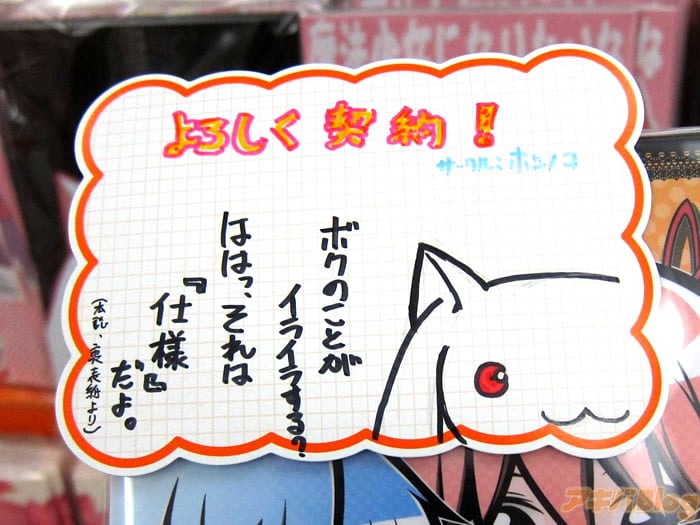 魔法少女になりたいななな
よろしく契約！
サークル：ホシノコ
ボクのことが
イライラする?
ははっ、それは
『仕様』
だよ。
アキバBlog